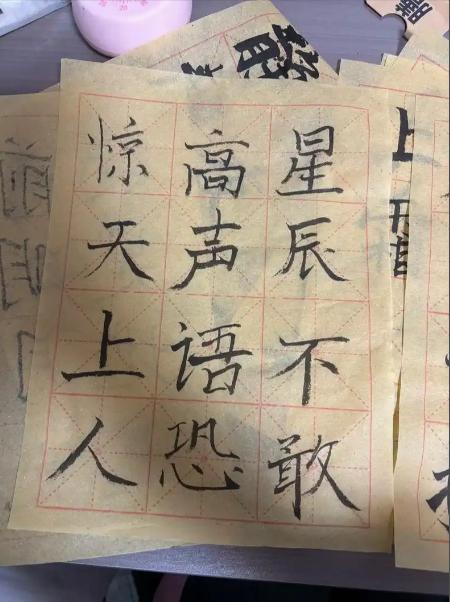 星辰不敢
高声语恐
惊天上人